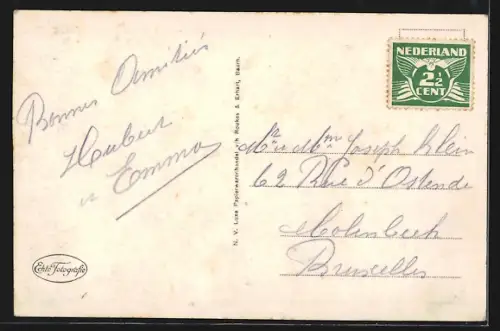 NEDERLAND
2½
CENT
Bonnes Amitiés
Hubert
et Emma
Mr et Mme Joseph Klein
62 Rue d'Ostende
Molenbeek
Bruxelles
N. V. Luxe Papierwarenhandel v/h Roukes & Erhart, Baarn.
Echte Fotografie